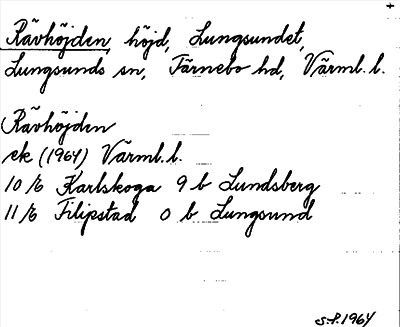 Rävhöjden, höjd, Lungsundet,
Lungsunds sn, Färnebo hd, Värml. l.
Rävhöjden
ek (1964) Värml. l.
10 k Karlskoga 9 b Lundsberg
11 k Filipstad 0 b Lungsund
S.P. 1964